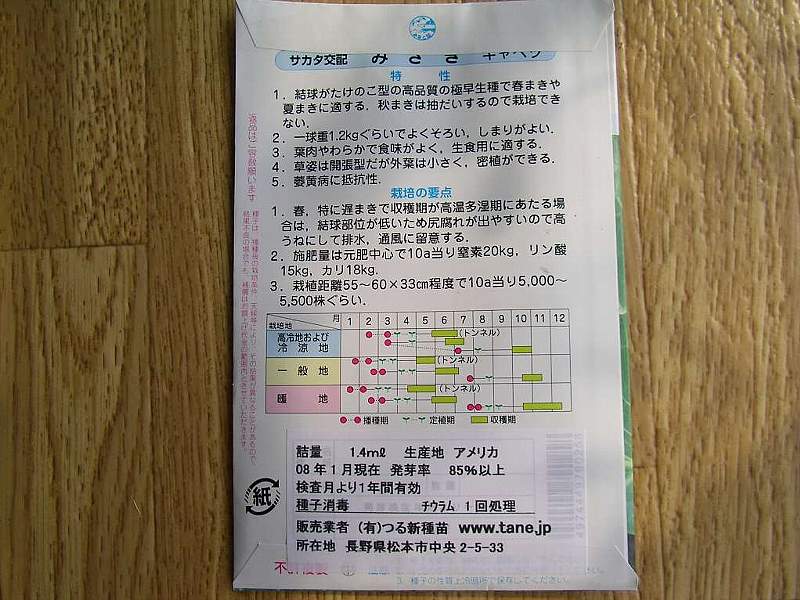 サカタ交配 みさき キャベツ
特性
1．結球がたけのこ型の高品質の極早生種で春まきや
夏まきに適する．秋まきは抽だいするので栽培でき
ない．
2．一球重1.2kgぐらいでよくそろい，しまりがよい．
3．葉肉やわらかで食味がよく，生食用に適する．
4．草姿は開張型だが外葉は小さく，密植ができる．
5．萎黄病に抵抗性．
栽培の要点
1．春，特に遅まきで収穫期が高温多湿期にあたる場
合は，結球部位が低いため尻腐れが出やすいので高
うねにして排水，通風に留意する．
2．施肥量は元肥中心で10a当り窒素20kg，リン酸
15kg，カリ18kg．
3．栽植距離55～60×33cm程度で10a当り5,000～
5,500株ぐらい．
栽培地 月 1 2 3 4 5 6 7 8 9 10 11 12
高冷地および
冷涼地
(トンネル)
一般地
(トンネル)
暖地
(トンネル)
播種期 定植期 収穫期
詰量 1.4mℓ 生産地 アメリカ
08年1月現在 発芽率 85%以上
検査月より1年間有効
種子消毒 チウラム 1回処理
販売業者 (有)つる新種苗 www.tane.jp
所在地 長野県松本市中央2-5-33
紙
不許複製
3．種子の性質上冷暗所で保存してください．
返品はご容赦願います